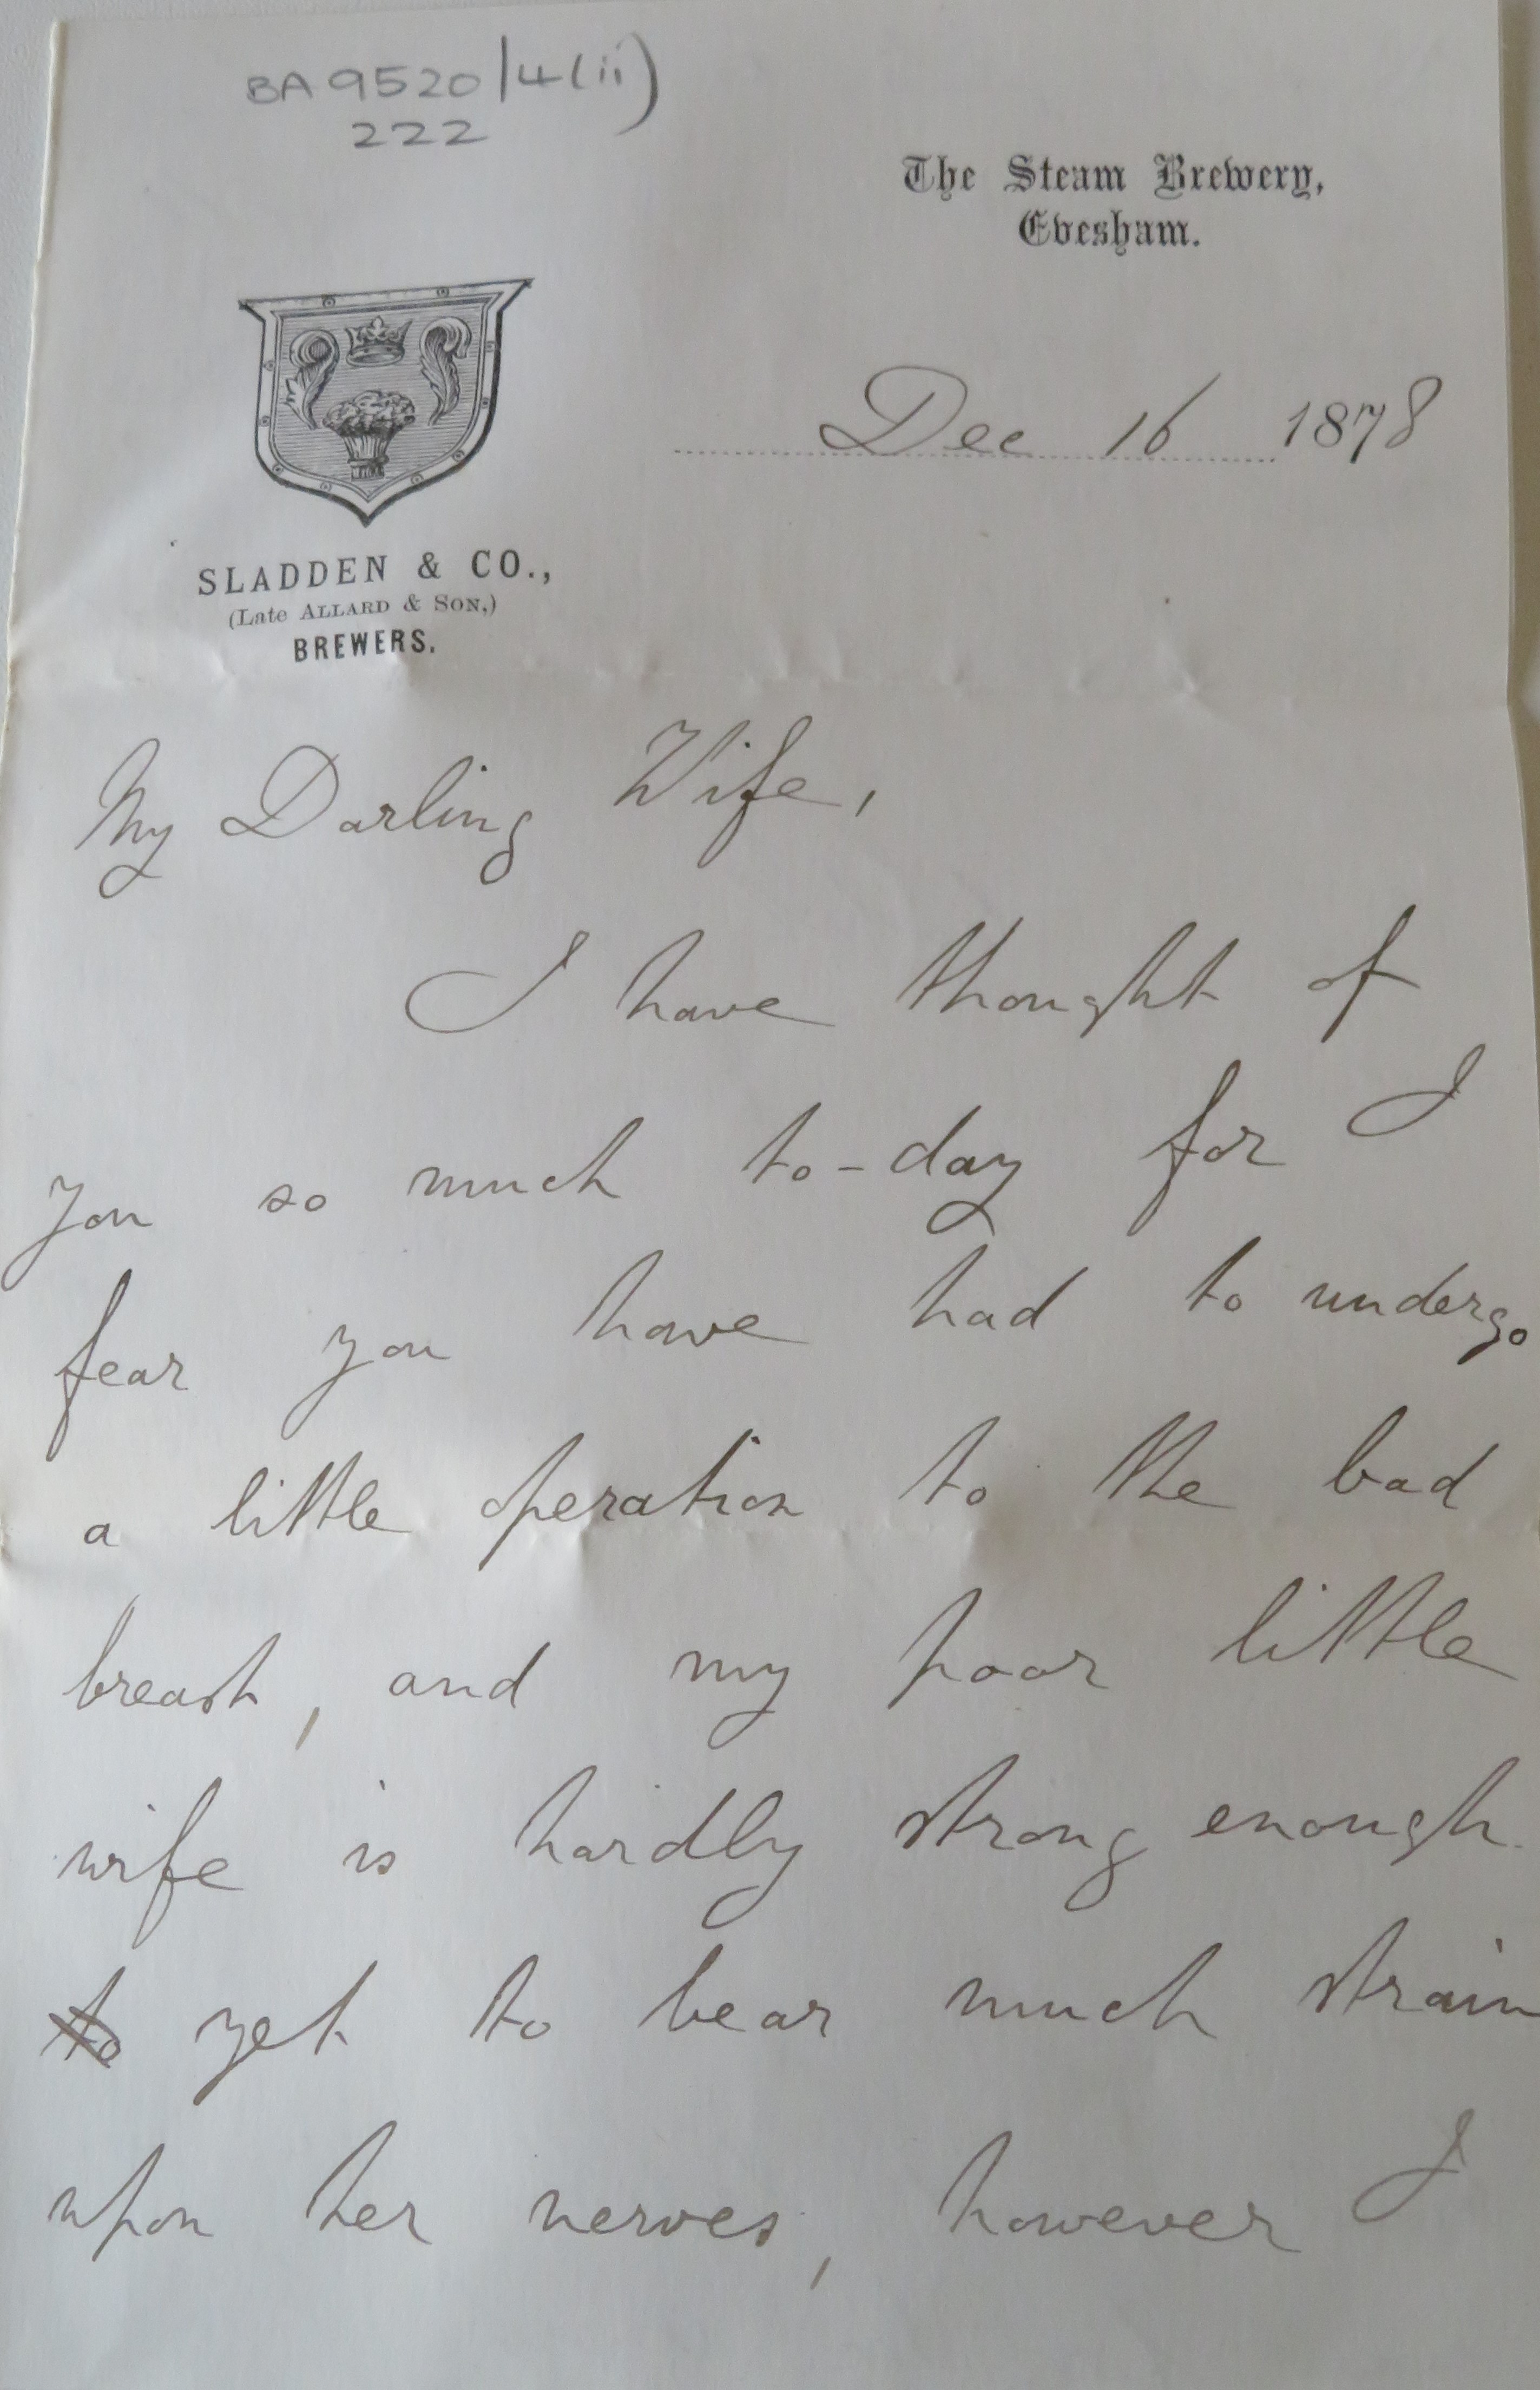 BA 9520/4(ii)
222
The Steam Brewery,
Evesham.
Dec 16 1878
SLADDEN & CO.,
(Late ALLARD & SON,)
BREWERS.
My Darling Wife,
I have thought of
you so much to-day for I
fear you have had to undergo
a little operation to the bad
breast, and my poor little
wife is hardly strong enough
to yet to bear much strain
upon her nerves, however I